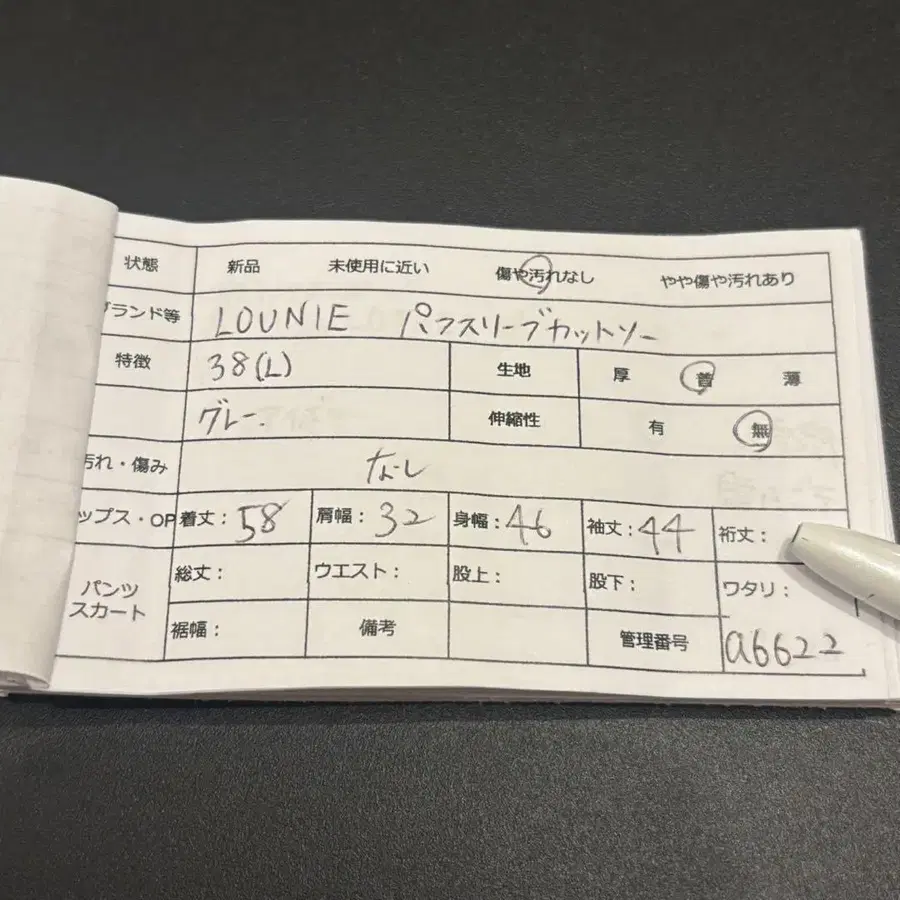 状態 新品 未使用に近い 傷や汚れなし やや傷や汚れあり
ブランド等 LOUNIE パフスリーブカットソー
特徴 38(L) 生地 厚 普 薄
グレー 伸縮性 有 無
汚れ・傷み なし
ップス・OP 着丈：58 肩幅：32 身幅：46 袖丈：44 裄丈：
パンツ スカート 総丈： ウエスト： 股上： 股下： ワタリ：
裾幅： 備考 管理番号 a6622